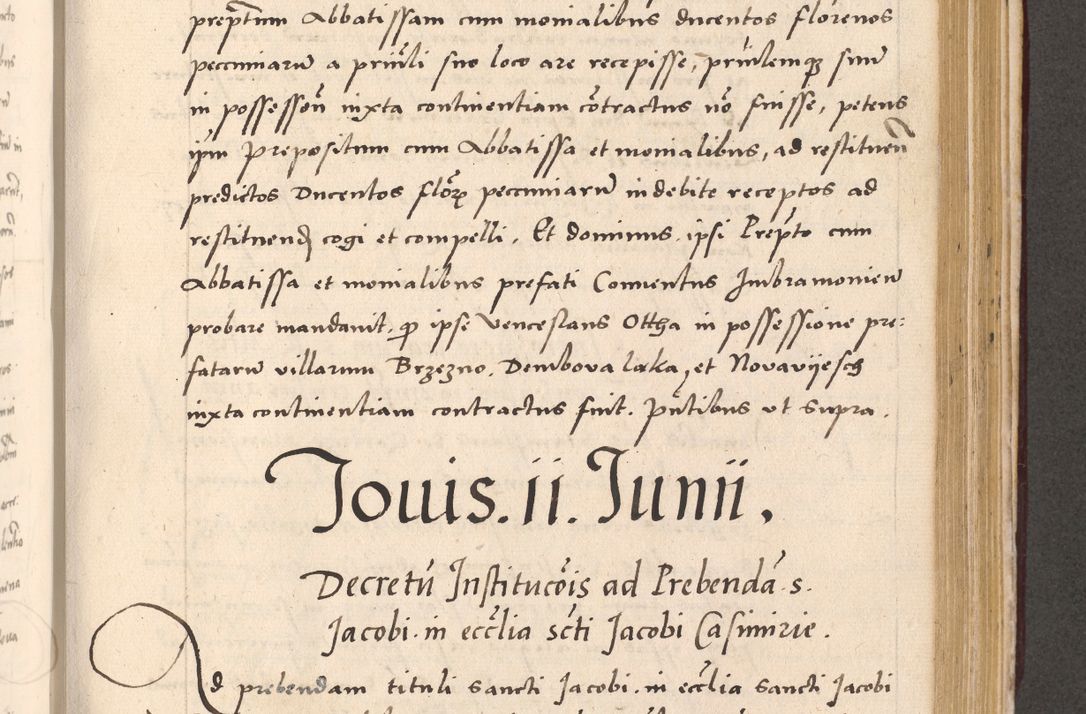 prep̃tum Abbatissam cum monialibus ducentos florenos
pecuniarũ a priũli suo loco are recepisse, priũlemqꝫ suũ
in possessoñ iuxta continentiam cõtractus nõ fuisse, petens
ip̃m Prepositum cum Abbatissa et monialibus, ad restituen̄
predictos Ducentos florꝝ pecuniarũ indebite receptos ad
restituendꝭ cogi et compelli. Et dominus. ipsi Prep̃to cum
Abbatissa et monialibus prefati Conuentus Imbramonien̄
probare mandauit. ꝙ ipse Venceslaus Ottha in possessione pre:
fatarũ villarum Brzezno. Dembova laka, et Novavÿesch
iuxta continentiam contractus fuit. Pñtibus ut supra.
Jouis. ii. Junii.
Decretũ Institucõis ad Prebendã s.
Jacobi. in eccĩlia scti Jacobi Casimirie.
Ad prebendam tituli sancti Jacobi. in eccĩlia sancti Jacobi